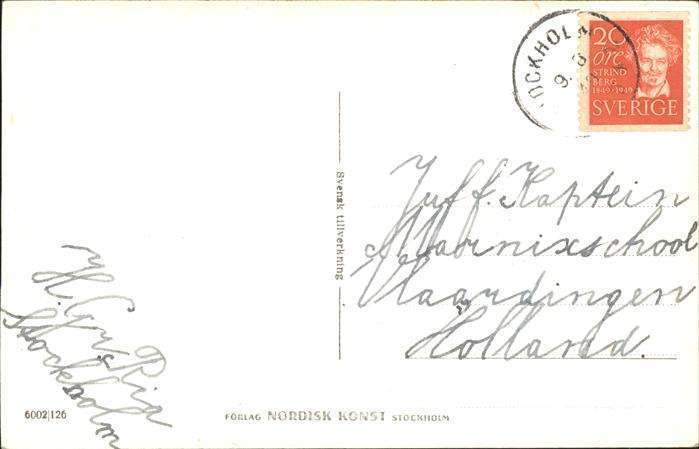 STOCKHOLM
9. 3
20
öre
STRIND
BERG
1849-1949
SVERIGE
Svensk tillverkning
Juff. Kaptein
Marnixschool
Vlaardingen
Holland.
H. Gr. Ria
Stockholm
6002/126
FÖRLAG NORDISK KONST STOCKHOLM